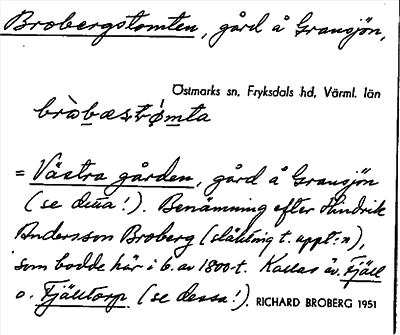 Brobergstomten, gård å Gransjön,
Östmarks sn, Fryksdals hd, Värml. län
brὰbæstrǿmta
= Västra gården, gård å Gransjön
(se detta!). Benämning efter Hindrik
Andersson Broberg (släkting t. uppt:n),
som bodde här i b. av 1800-t. Kallas äv. Fjäll
o. Fjälltorp (se dessa!). RICHARD BROBERG 1951